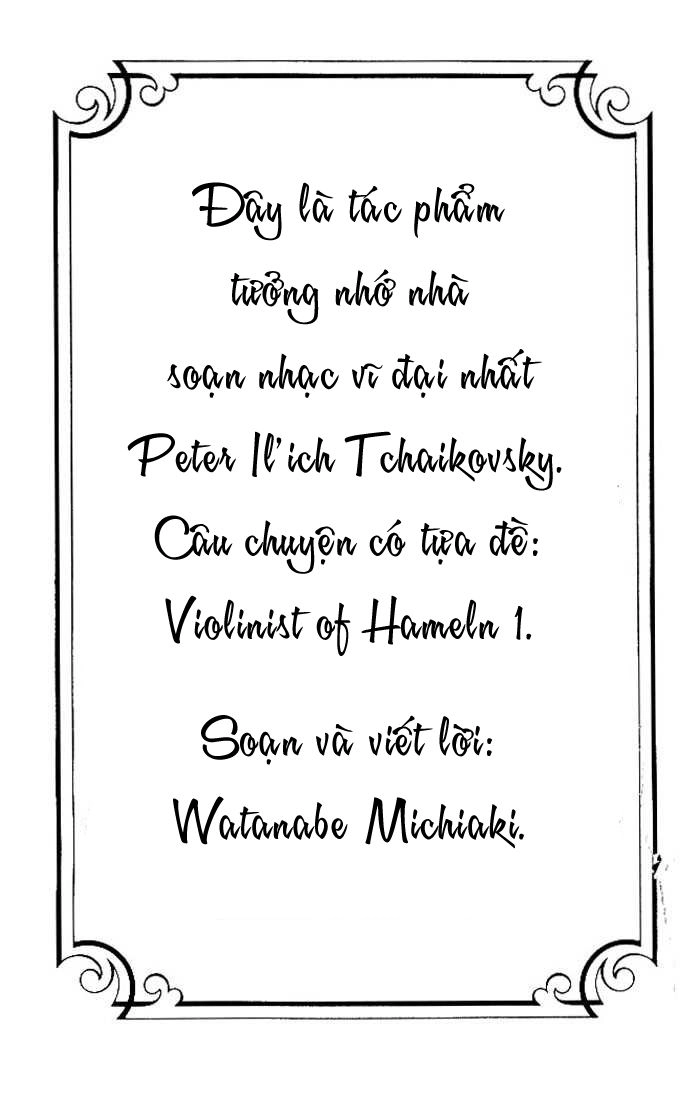 Đây là tác phẩm
tưởng nhớ nhà
soạn nhạc vĩ đại nhất
Peter Il'ich Tchaikovsky.
Câu chuyện có tựa đề:
Violinist of Hameln 1.
Soạn và viết lời:
Watanabe Michiaki.